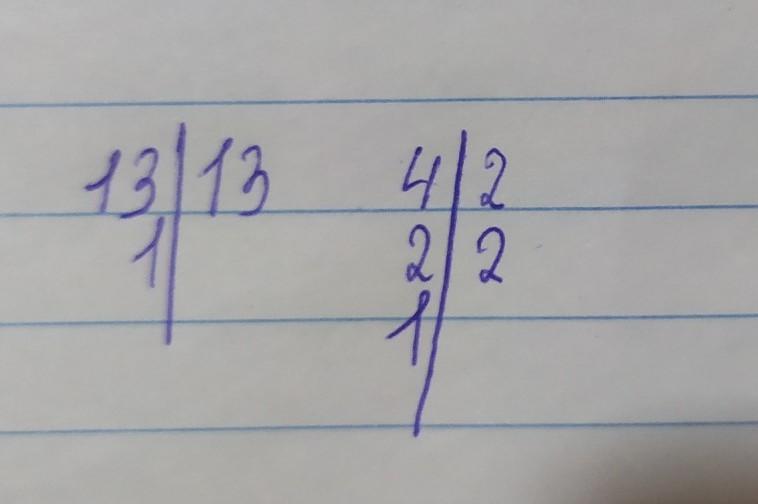 13|13 4|2
1| 2|2
1|